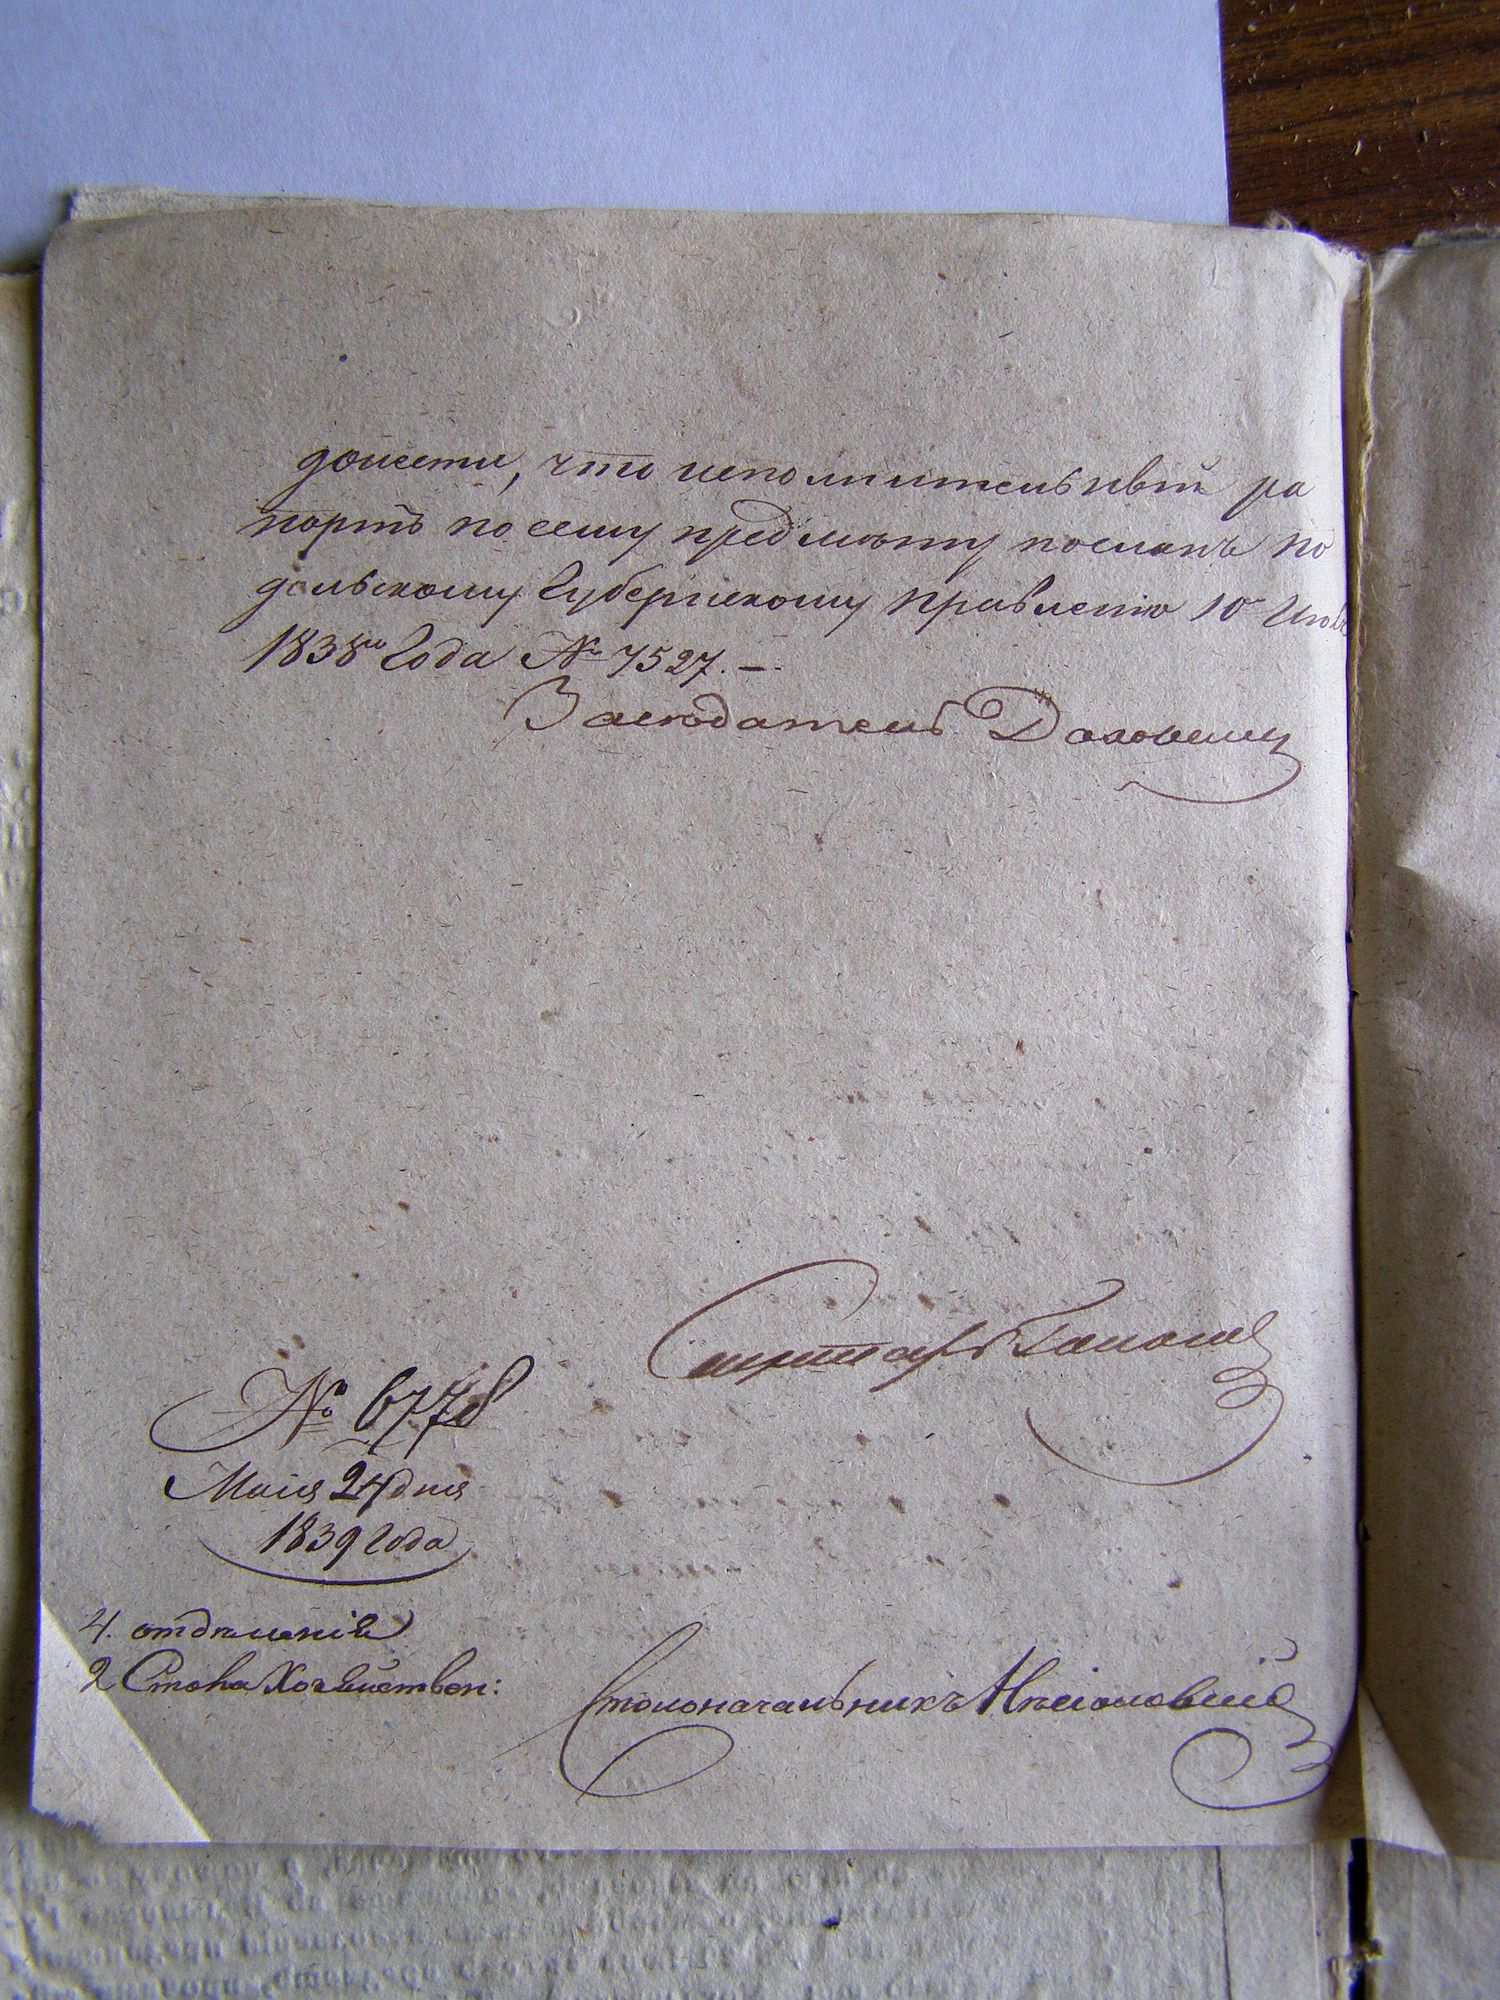 донести, что исполнительный ра
портъ по сему предмѣту посланъ по
дольскому Губернскому правленію 10го
1838го года № 7527. —
Засѣдатель
Секретарь
№ 6778
Маія 24 дня
1839 года
4. отдѣленія
2 Стола Хозяйствен:
Столоначальникъ